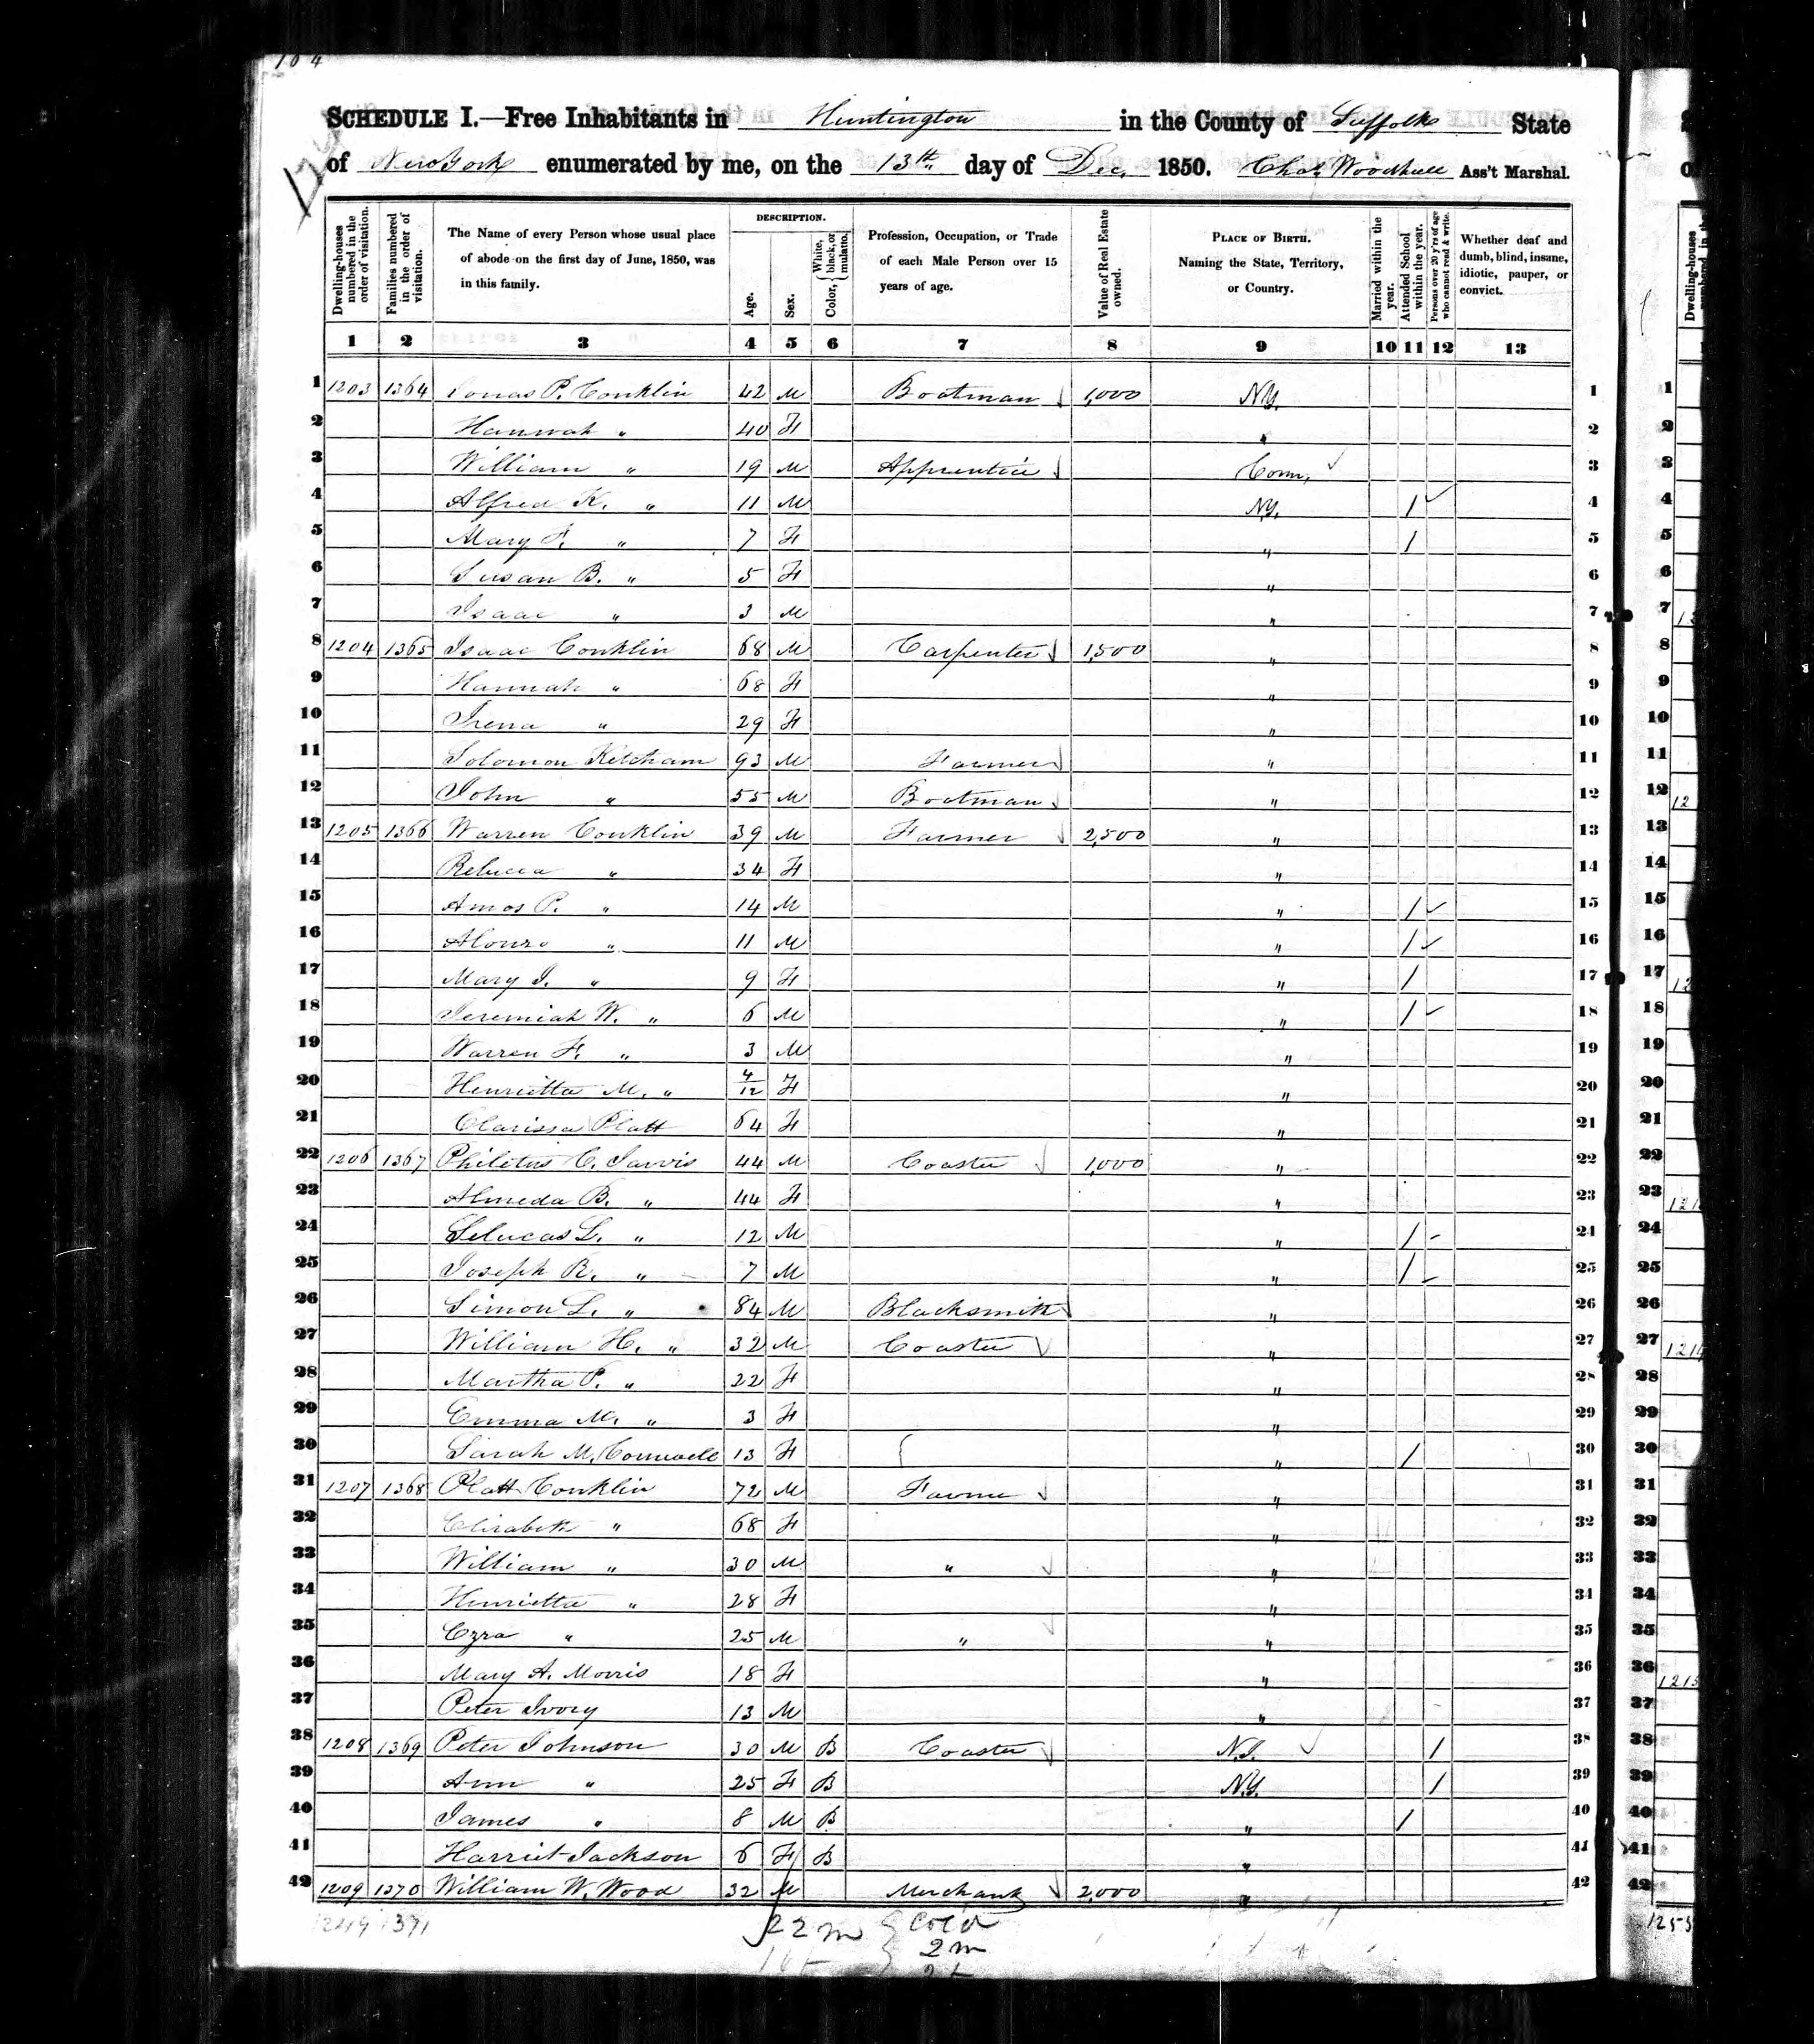 104
SCHEDULE I.—Free Inhabitants in Huntington in the County of Suffolk State
of New York enumerated by me, on the 13th. day of Dec. 1850. Chas Woodhull Ass't Marshal.
Dwelling-houses numbered in the order of visitation.
Families numbered in the order of visitation.
The Name of every Person whose usual place of abode on the first day of June, 1850, was in this family.
DESCRIPTION.
Age.
Sex.
Color, { White, black, or mulatto.
Profession, Occupation, or Trade of each Male Person over 15 years of age.
Value of Real Estate owned.
PLACE OF BIRTH. Naming the State, Territory, or Country.
Married within the year.
Attended School within the year.
Persons over 20 y'rs of age who cannot read & write.
Whether deaf and dumb, blind, insane, idiotic, pauper, or convict.
1 2 3 4 5 6 7 8 9 10 11 12 13
1 1203 1364 Jonas P. Conklin 42 M Boatman 1,000 N.Y. 1
2 Hannah " 40 F " 2
3 William " 19 M Apprentice Conn. 3
4 Alfred K. " 11 M N.Y. / 4
5 Mary F. " 7 F " / 5
6 Susan B. " 5 F " 6
7 Isaac " 3 M " 7
8 1204 1365 Isaac Conklin 68 M Carpenter 1,500 " 8
9 Hannah " 68 F " 9
10 Irena " 29 F " 10
11 Solomon Ketcham 93 M Farmer " 11
12 John " 55 M Boatman " 12
13 1205 1366 Warren Conklin 39 M Farmer 2,500 " 13
14 Rebecca " 34 F " 14
15 Amos P. " 14 M " / 15
16 Alonzo " 11 M " / 16
17 Mary J. " 9 F " / 17
18 Jeremiah W. " 6 M " / 18
19 Warren F. " 3 M " 19
20 Henrietta M. " 4/12 F " 20
21 Clarissa Platt 64 F " 21
22 1206 1367 Philetus C. Jarvis 44 M Coaster 1,000 " 22
23 Almeda B. " 44 F " 23
24 Selucas L. " 12 M " / 24
25 Joseph R. " 7 M " / 25
26 Simon L. " 84 M Blacksmith " 26
27 William H. " 32 M Coaster " 27
28 Martha P. " 22 F " 28
29 Emma M. " 3 F " 29
30 Sarah M. Cornwell 13 F " / 30
31 1207 1368 Platt Conklin 72 M Farmer " 31
32 Elizabeth " 68 F " 32
33 William " 30 M " " 33
34 Henrietta " 28 F " 34
35 Ezra " 25 M " " 35
36 Mary A. Morris 18 F " 36
37 Peter Ivory 13 M " 37
38 1208 1369 Peter Johnson 30 M B Coaster N.J. / 38
39 Ann " 25 F B N.Y. / 39
40 James " 8 M B " / 40
41 Harriet Jackson 6 F B " 41
42 1209 1370 William W. Wood 32 M Merchant 2,000 " 42
1371
22 m Col'd
2 m